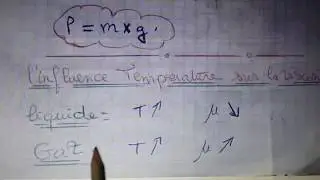 P = m x g.
l'influence Température sur la
liquide = T ↗ μ ↘
Gaz T ↗ μ ↗